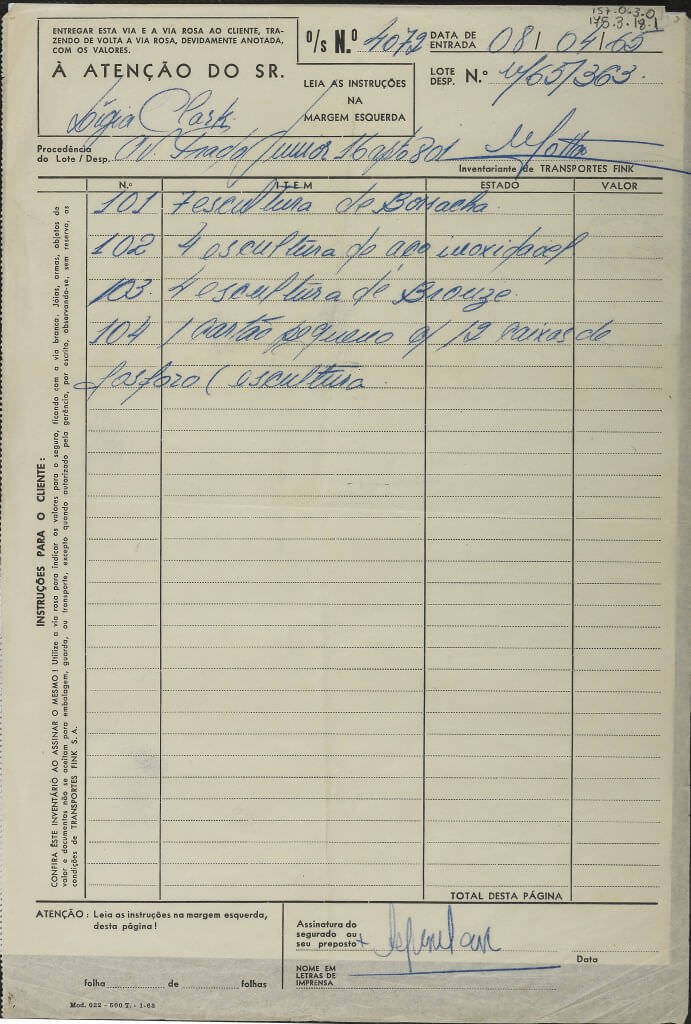 157-0.3-0
175.3-18-1
ENTREGAR ESTA VIA E A VIA ROSA AO CLIENTE, TRA-
ZENDO DE VOLTA A VIA ROSA, DEVIDAMENTE ANOTADA,
COM OS VALORES.
À ATENÇÃO DO SR.
Lígia Clark
O/S N.º 4072
DATA DE
ENTRADA 08/04/65
LEIA AS INSTRUÇÕES
NA
MARGEM ESQUERDA
LOTE
DESP. N.º V/65/363.
Procedência
do Lote / Desp. Av Prado Junior 16 apto 801
Motta
Inventariante de TRANSPORTES FINK
N.º ITEM ESTADO VALOR
101 7 escultura de Borracha
102 4 escultura de aço inoxidavel
103. 4 escultura de Bronze
104 1 cartão pequeno c/ 12 caixas de
fosforo ( escultura
INSTRUÇÕES PARA O CLIENTE:
CONFIRA ÊSTE INVENTÁRIO AO ASSINAR O MESMO! Utilize a via rosa para indicar os valores para o seguro, ficando com a via branca. Jóias, armas, objetos de
valor e documentos não se aceitam para embalagem, guarda, ou transporte, excepto quando autorizado pela gerência, por escrito, observando-se, sem reserva, as
condições de TRANSPORTES FINK S. A.
TOTAL DESTA PÁGINA
ATENÇÃO: Leia as instruções na margem esquerda,
desta página!
folha de folhas
Assinatura do
segurado ou
seu preposto
Data
NOME EM
LETRAS DE
IMPRENSA
Mod. 022 - 500 T. - 1-63